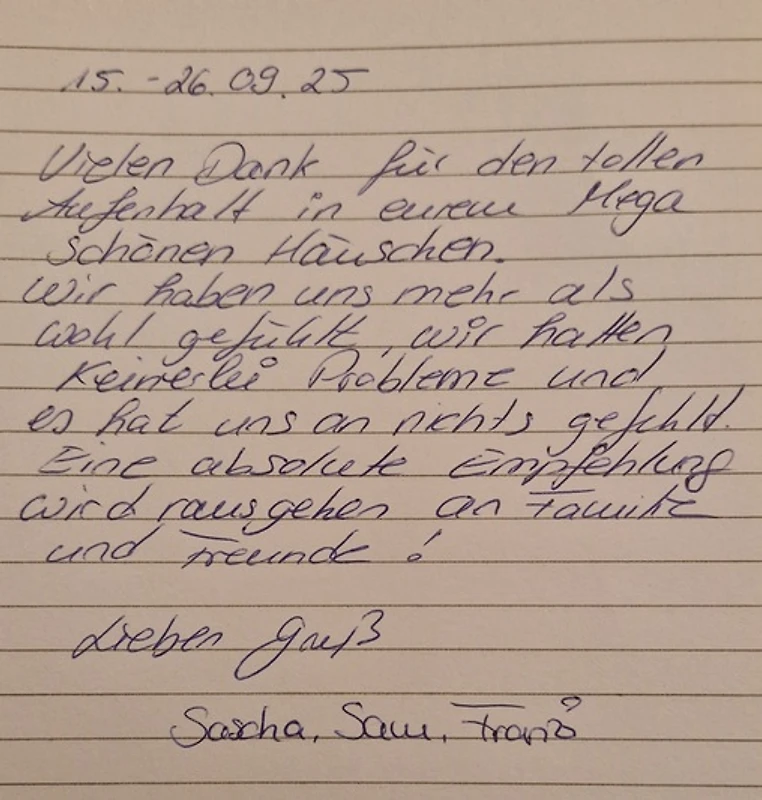 15. - 26. 09. 25
Vielen Dank für den tollen
Aufenhalt in eurem Mega
schönen Häuschen.
Wir haben uns mehr als
wohl gefühlt, wir hatten
Keinerlei Probleme und
es hat uns an nichts gefehlt.
Eine absolute Empfehlung
wird rausgehen an Familie
und Freunde !
Lieben Gruß
Sascha, Sam,